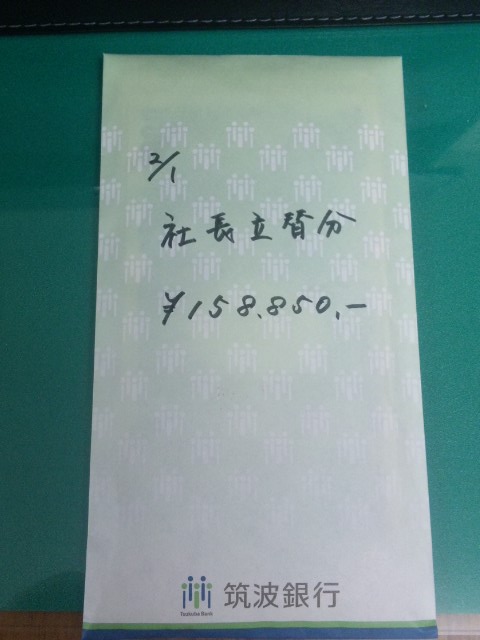 2/1
社長立替分
¥158,850,-
筑波銀行
Tsukuba Bank